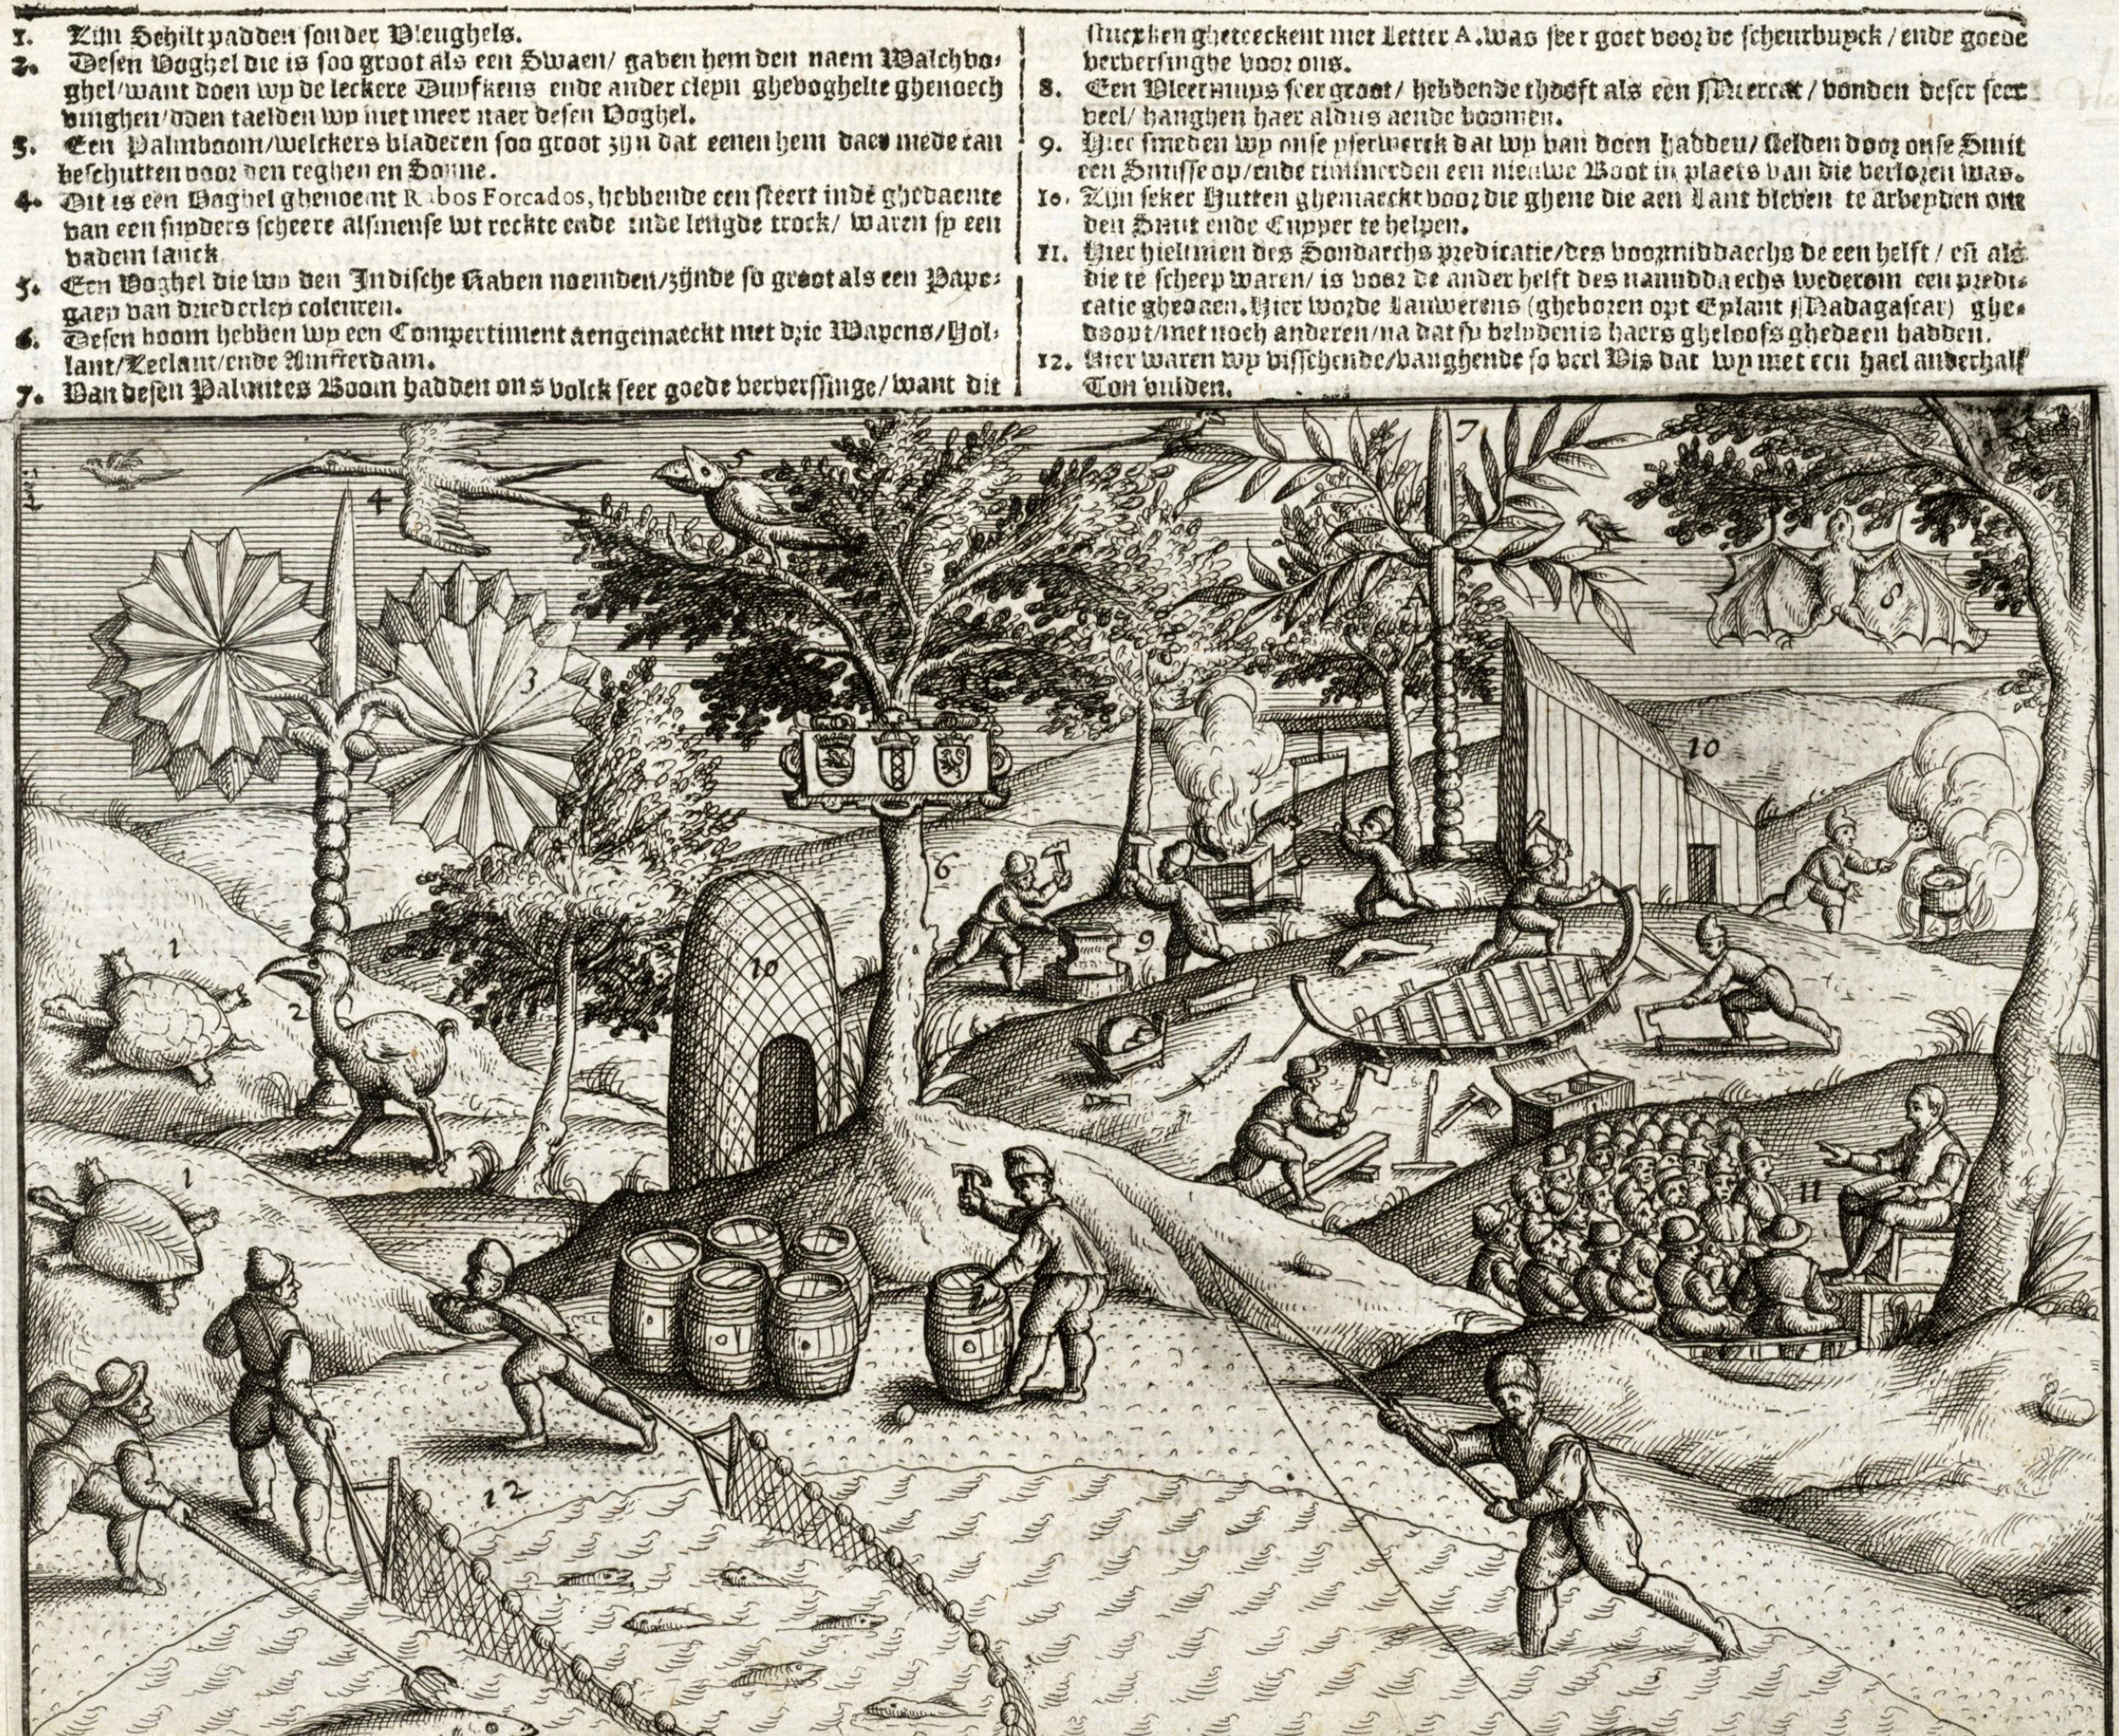 1. Zijn Schiltpadden sonder Vleughels.
2. Desen Voghel die is soo groot als een Swaen/ gaven hem den naem Walchvo-
ghel/want doen wy de leckere Duyfkens ende ander cleyn ghevoghelte ghenoech
vinghen/ taelden wy niet meer naer desen Voghel.
3. Een Palmboom/welckers bladeren soo groot zijn dat eenen hem daer mede can
beschutten voor den reghen en Sonne.
4. Dit is een Voghel ghenoemt Rabos Forcados, hebbende een steert inde ghedaente
van een snyders scheere alsmense wt reckte ende inde lengde trock/ waren sy een
vadem lanck
5. Een Voghel die wy den Indische Raven noemden/zijnde so groot als een Pape-
gaey van driederley coleuren.
6. Desen boom hebben wy een Compertiment aengemaeckt met drie Wapens/Hol-
lant/Zeelant/ende Amsterdam.
7. Van desen Palmites Boom hadden ons volck seer goede ververssinge/want dit
stucxken gheteeckent met Letter A. was seer goet voor de scheurbuyck/ende goede
verversinghe voor ons.
8. Een Vleermuys seer groot/ hebbende thooft als een Meercat/ vonden deser seer
veel/ hanghen haer aldus aende boomen.
9. Hier smeden wy onse yserwerck dat wy van doen hadden/ stelden door onse Smit
een Smisse op/ende timmerden een nieuwe Boot in plaets van die verloren was.
10. Zijn seker Hutten ghemaeckt voor die ghene die aen Lant bleven te arbeyden om
den Smit ende Cuyper te helpen.
11. Hier hieltmen des Sondaechs predicatie/des voormiddaechs de een helft/ eñ als
die te scheep waren/ is voor de ander helft des namiddaechs wederom een predi-
catie ghedaen. Hier worde Lauwerens (gheboren opt Eylant Madagascar) ghe-
doopt/met noch anderen/na dat sy belydenis haers gheloofs ghedaen hadden.
12. Hier waren wy visschende/vanghende so veel Vis dat wy met een hael anderhalf
Ton vulden.
5
7
4
8
3
10
6
1
9
10
2
1
11
12